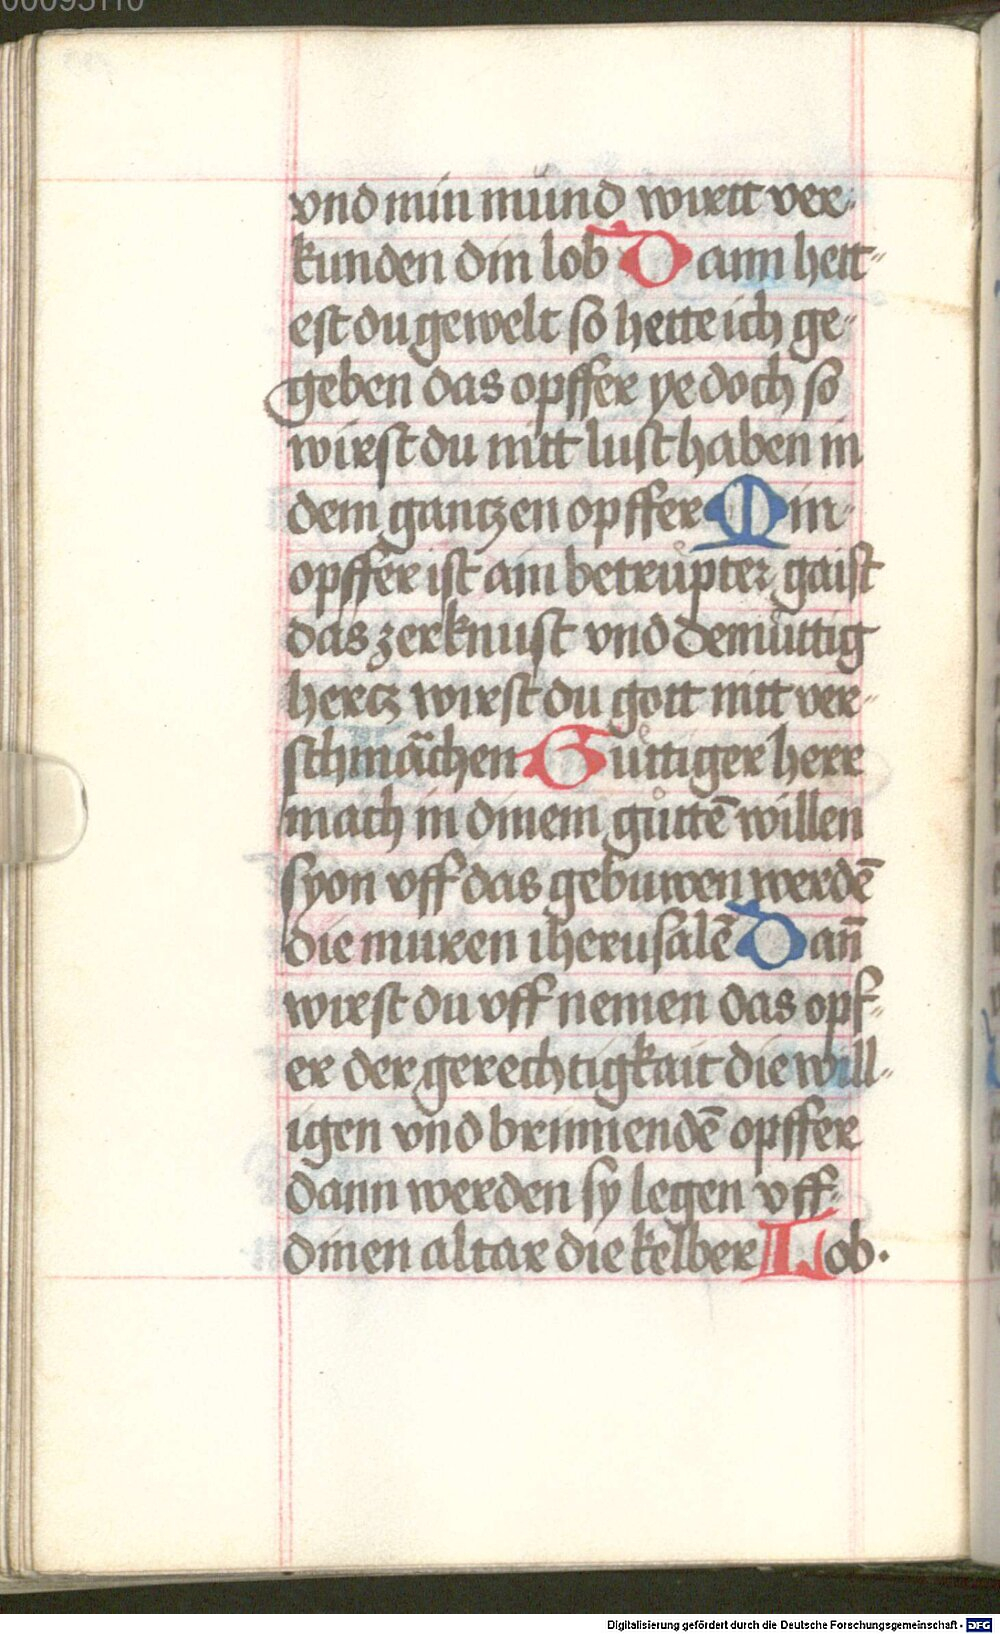 00095110
vnd min mund wirtt ver-
kunden din lob Dann hett-
est du gewelt so hette ich ge-
geben das opffer ye doch so
wirst du nitt lust haben in
dem gantzen opffer Min-
opffer ist ain betrůpter gaist
das zerknust vnd demůttig
hertz wirst du gott nitt ver-
schmächen Gůttiger herr
mach in dinem gůttē willen
syon vff das gebuwen werdē
die muren iherusalē Dañ
wirst du vff nemen das opf-
er der gerechtigkait die will-
igen vnd brinnendē opffer
dann werden sy legen vff-
dinen altar die kelber Lob.
Digitalisierung gefördert durch die Deutsche Forschungsgemeinschaft - DFG